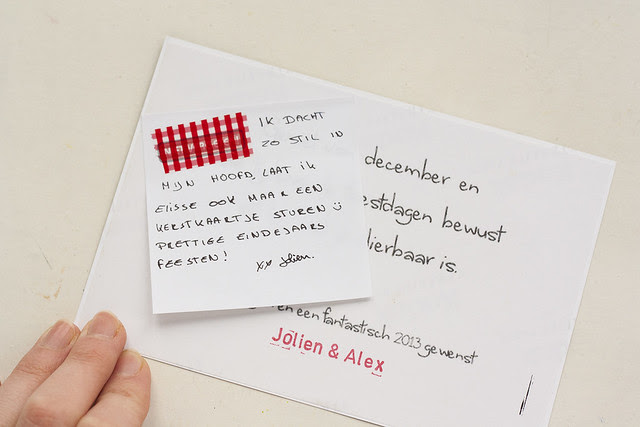 IK DACHT
ZO STIL IN
MIJN HOOFD, LAAT IK
ELISSE OOK MAAR EEN
KERSTKAARTJE STUREN
PRETTIGE EINDEJAARS
FEESTEN!
xx Jolien.
december en
estdagen bewust
dierbaar is.
en een fantastisch 2013 gewenst
Jolien & Alex